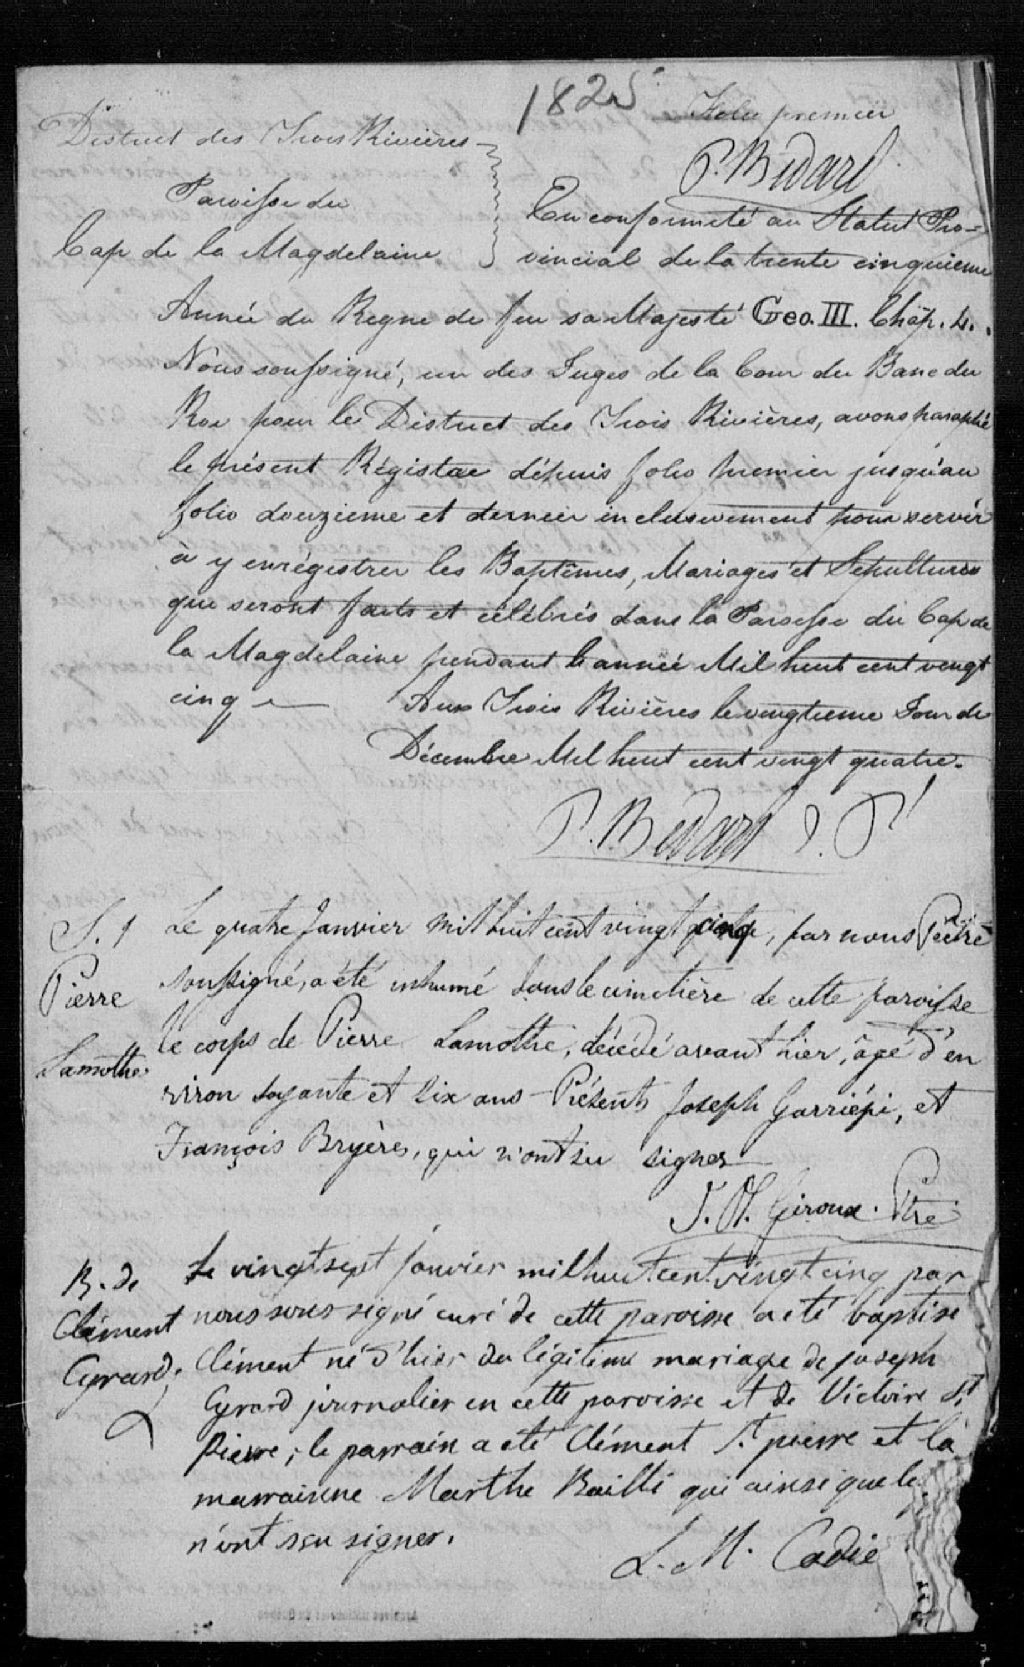 1825
Folio premier
P. Bedard
District des Trois Rivières
Paroisse du
Cap de la Magdelaine
En conformité au Statut Pro-
vincial de la trente cinquieme
Année du Regne de feu sa Majesté Geo. III. Chap. 4.
Nous soussigné, un des Juges de la Cour du Banc du
Roi pour le District des Trois Rivières, avons paraphé
le présent Régistre dépuis folio premier jusqu'au
folio douzieme et dernier inclusivement pour servir
à y enrégistrer les Baptêmes, Mariages et Sépultures
qui seront faits et célébrés dans la Paroisse du Cap de
la Magdelaine pendant l'année Mil huit cent vingt
cinq — Aux Trois Rivières le vingtieme Jour de
Décembre Mil huit cent vingt quatre.
P. Bedard J. P.
S. 1
Pierre
Lamothe
Le quatre Janvier mil huit cent vingt cinq, par nous Prêtre
soussigné, a été inhumé dans le cimetière de cette paroisse
le corps de Pierre Lamothe, décédé avant hier, âgé d'en
viron soyante et dix ans - Présents Joseph Garriépi, et
François Bryères, qui n'ont su signer
Giroux. Ptre
B. de
Clément
Gyrard;
Le vingt sept janvier mil huit cent vingt cinq par
nous sous signé curé de cette paroisse a eté baptise
Clément né d'hier du légitime mariage de joseph
Gyrard journalier en cette paroisse et de Victoire St
Pierre; le parrain a eté Clément St pierre et la
marrainne Marthe Bailli qui ainsi que le
n'ont seu signer.
L. M. Cadie